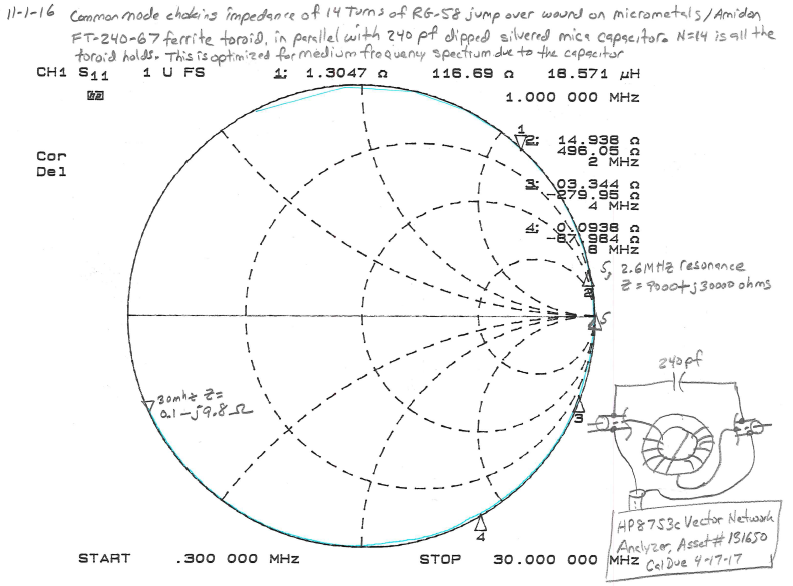 11-1-16 Common mode choking impedance of 14 Turns of RG-58 jump over wound on micrometals/Amidon
FT-240-67 ferrite toroid, in parallel with 240 pf dipped silvered mica capacitor. N=14 is all the
toroid holds. This is optimized for medium frequency spectrum due to the capacitor
CH1 S11 1 U FS 1; 1.3047 Ω 116.69 Ω 18.571 µH
1.000 000 MHz
Cor
Del
1
2; 14.938 Ω
496.05 Ω
2 MHz
3; 03.344 Ω
-279.95 Ω
4 MHz
4; 0.0938 Ω
-67.984 Ω
8 MHz
5, 2.6MHz resonance
Z = 9000+j30000 ohms
2
5
240pf
30mhz Z=
0.1-j9.8Ω
3
4
HP8753c Vector Network
Analyzer, Asset# 131650
Cal Due 4-17-17
START .300 000 MHz STOP 30.000 000 MHz